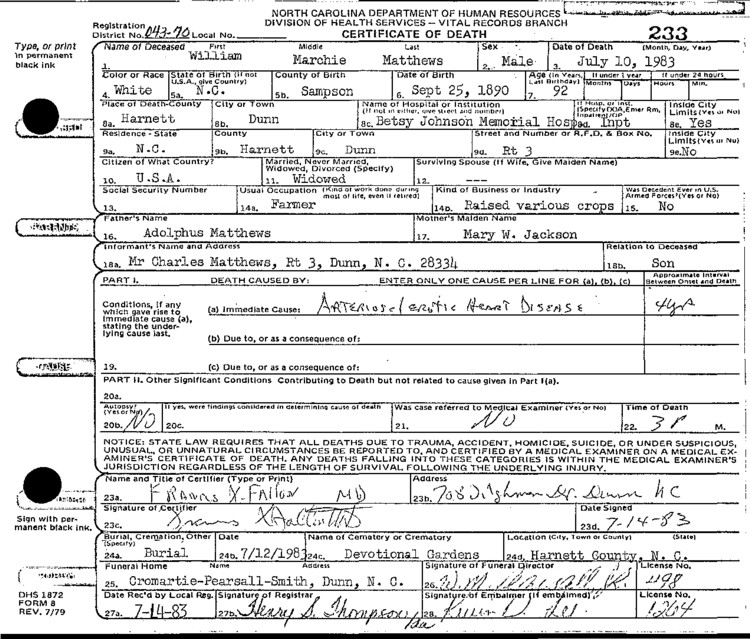 NORTH CAROLINA DEPARTMENT OF HUMAN RESOURCES
DIVISION OF HEALTH SERVICES – VITAL RECORDS BRANCH
Registration District No. 043-70 Local No. CERTIFICATE OF DEATH 233
Type, or print in permanent black ink
Name of Deceased First Middle Last Sex Date of Death (Month, Day, Year)
1. William Marchie Matthews 2. Male 3. July 10, 1983
Color or Race State of Birth (If not U.S.A., give Country) County of Birth Date of Birth Age (In Years, Last Birthday) If under 1 year Months Days If under 24 hours Hours Min.
4. White 5a. N.C. 5b. Sampson 6. Sept 25, 1890 7. 92
Place of Death-County City or Town Name of Hospital or Institution (If not in either, give street and number) If Hosp. or Inst. (Specify DOA, Emer Rm, Inpt/OP Inside City Limits (Yes or No)
8a. Harnett 8b. Dunn 8c. Betsy Johnson Memorial Hosp 8d. Inpt 8e. Yes
Residence - State County City or Town Street and Number or R.F.D. & Box No. Inside City Limits (Yes or No)
9a. N.C. 9b. Harnett 9c. Dunn 9d. Rt 3 9e. No
Citizen of What Country? Married, Never Married, Widowed, Divorced (Specify) Surviving Spouse (If Wife, Give Maiden Name)
10. U.S.A. 11. Widowed 12. ---
Social Security Number Usual Occupation (Kind of work done during most of life, even if retired) Kind of Business or Industry Was Decedent Ever in U.S. Armed Forces? (Yes or No)
13. 14a. Farmer 14b. Raised various crops 15. No
PARENTS
Father's Name Mother's Maiden Name
16. Adolphus Matthews 17. Mary W. Jackson
Informant's Name and Address Relation to Deceased
18a. Mr Charles Matthews, Rt 3, Dunn, N. C. 28334 18b. Son
PART I. DEATH CAUSED BY: ENTER ONLY ONE CAUSE PER LINE FOR (a), (b), (c) Approximate Interval Between Onset and Death
Conditions, if any which gave rise to immediate cause (a), stating the underlying cause last.
(a) Immediate Cause: ARTERIOSclerotic Heart DISEASE 4 yr
(b) Due to, or as a consequence of:
CAUSE
19. (c) Due to, or as a consequence of:
PART II. Other Significant Conditions Contributing to Death but not related to cause given in Part I(a).
20a.
Autopsy? (Yes or No) If yes, were findings considered in determining cause of death Was case referred to Medical Examiner (Yes or No) Time of Death
20b. NO 20c. 21. NO 22. 3 P M.
NOTICE: STATE LAW REQUIRES THAT ALL DEATHS DUE TO TRAUMA, ACCIDENT, HOMICIDE, SUICIDE, OR UNDER SUSPICIOUS,
UNUSUAL, OR UNNATURAL CIRCUMSTANCES BE REPORTED TO, AND CERTIFIED BY A MEDICAL EXAMINER ON A MEDICAL EX-
AMINER'S CERTIFICATE OF DEATH. ANY DEATHS FALLING INTO THESE CATEGORIES IS WITHIN THE MEDICAL EXAMINER'S
JURISDICTION REGARDLESS OF THE LENGTH OF SURVIVAL FOLLOWING THE UNDERLYING INJURY.
Name and Title of Certifier (Type or Print) Address
23a. FRANCIS X. FALLON MD 23b. 708 Tilghman Dr. Dunn NC
Sign with permanent black ink.
Signature of Certifier Date Signed
23c. 23d. 7-14-83
Burial, Cremation, Other (Specify) Date Name of Cemetery or Crematory Location (City, Town or County) (State)
24a. Burial 24b. 7/12/1983 24c. Devotional Gardens 24d. Harnett County, N. C.
Funeral Home Name Address Signature of Funeral Director License No.
25. Cromartie-Pearsall-Smith, Dunn, N. C. 26. 498
DHS 1872
FORM 8
REV. 7/79
Date Rec'd by Local Reg. Signature of Registrar Signature of Embalmer (if embalmed) License No.
27a. 7-14-83 27b. Henry S. Thompson 28. 1264